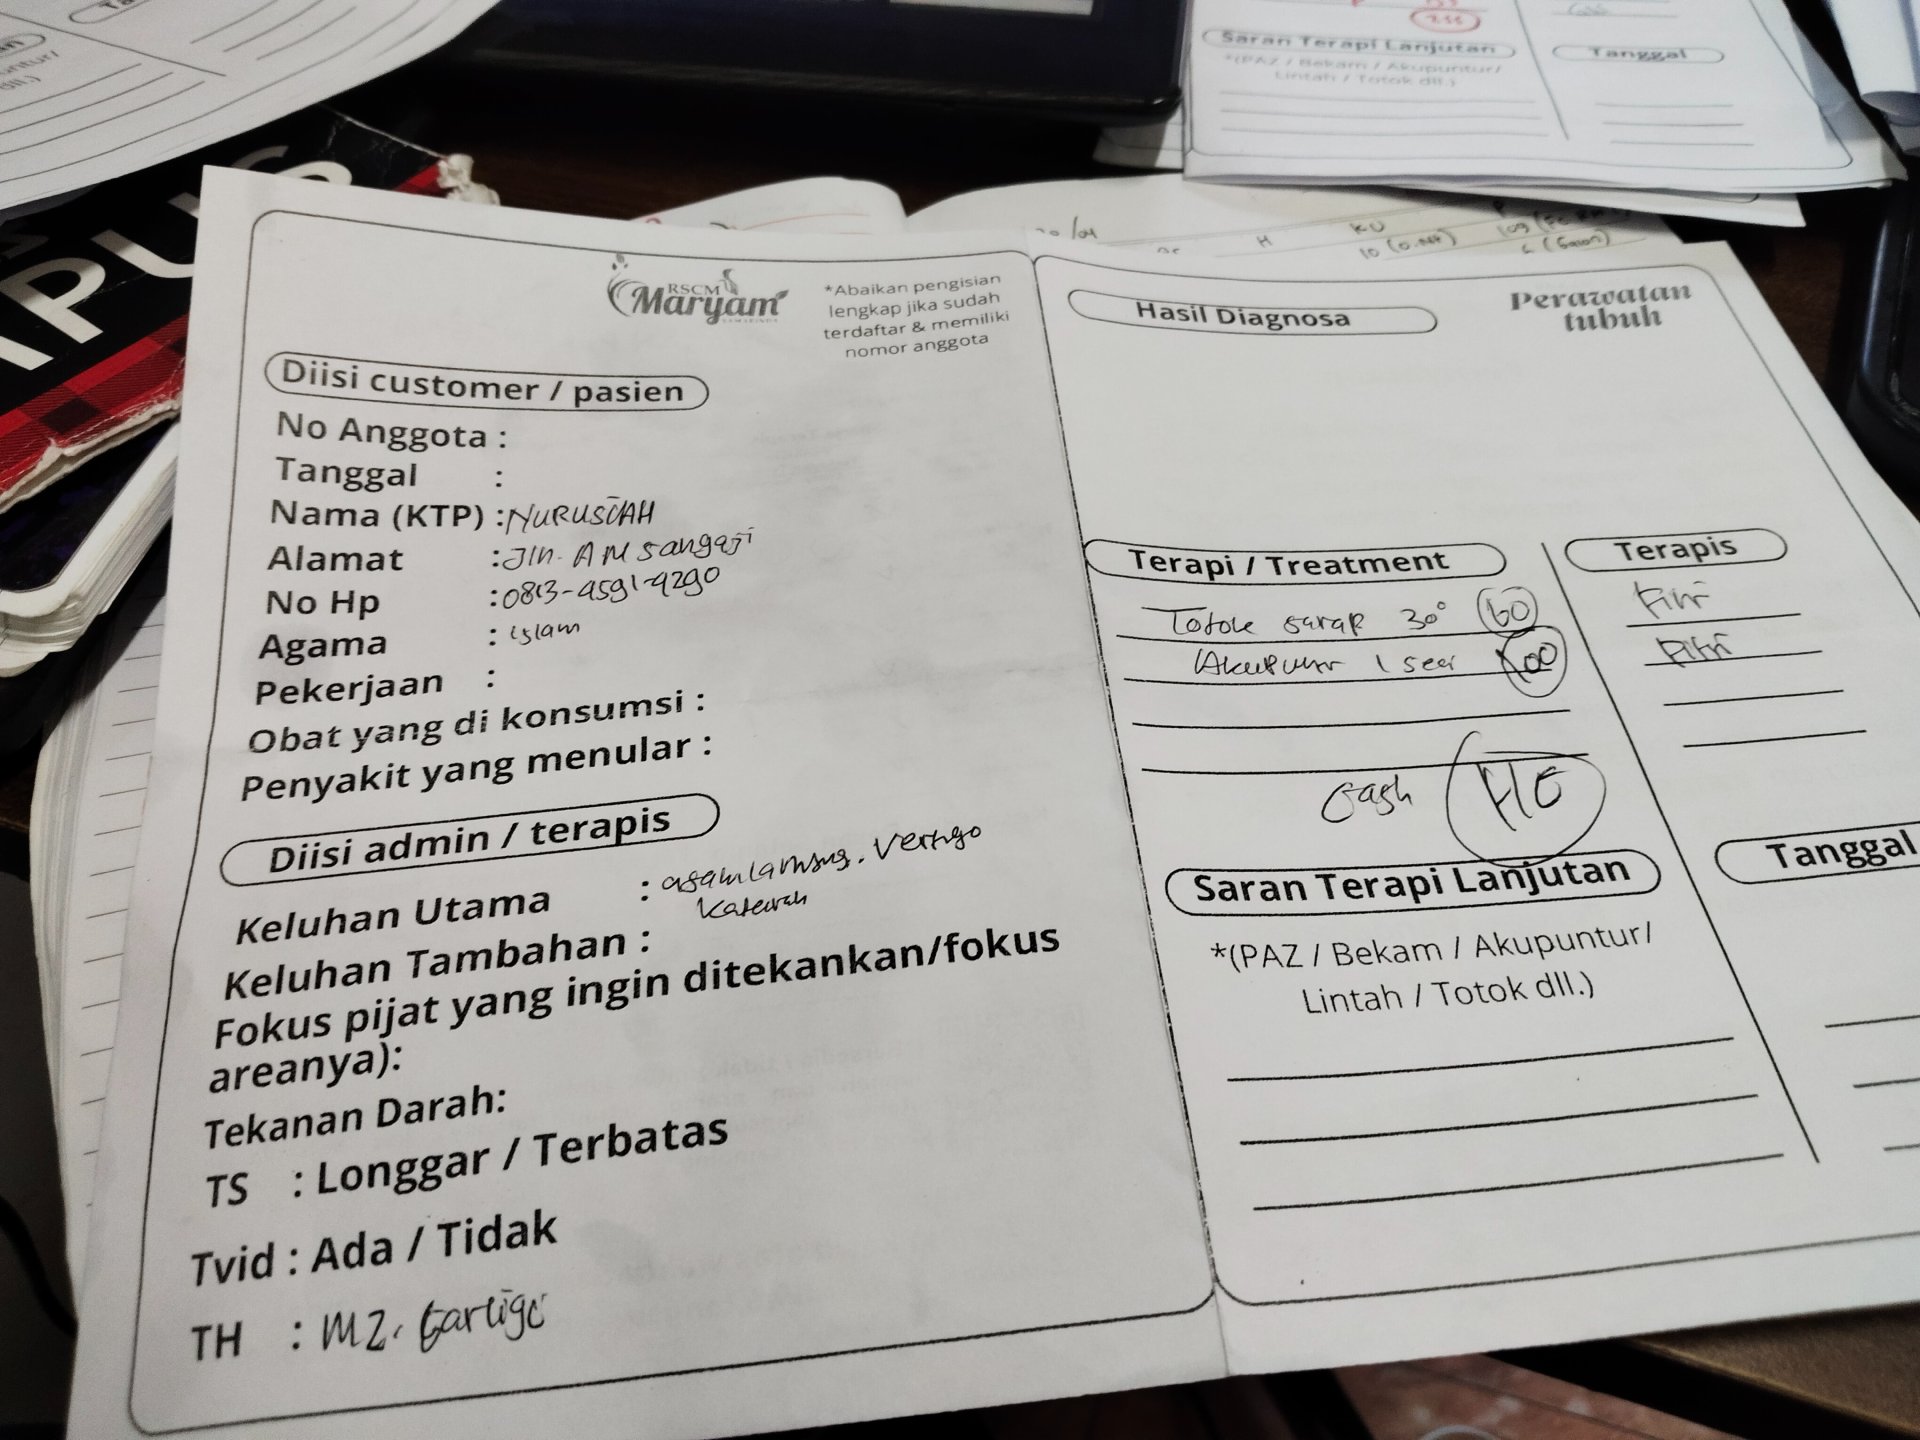 RSCM
Maryam
*Abaikan pengisian
lengkap jika sudah
terdaftar & memiliki
nomor anggota
Diisi customer / pasien
No Anggota :
Tanggal :
Nama (KTP) : NURUSIAH
Alamat : Jln. AM Sangaji
No Hp : 0813-4591-4290
Agama : islam
Pekerjaan :
Obat yang di konsumsi :
Penyakit yang menular :
Diisi admin / terapis
Keluhan Utama : asam lambung. Vertigo
Keluhan Tambahan :
Fokus pijat yang ingin ditekankan/fokus
areanya):
Tekanan Darah:
TS : Longgar / Terbatas
Tvid : Ada / Tidak
TH : MZ.
Hasil Diagnosa
Perawatan
tubuh
Terapi / Treatment
Terapis
Totok saraf 30° 60 Fitri
Akupuntur 1 sesi 100 Fitri
Cash
Saran Terapi Lanjutan
Tanggal
*(PAZ / Bekam / Akupuntur/
Lintah / Totok dll.)
Saran Terapi Lanjutan
Tanggal
*(PAZ / Bekam / Akupuntur/
Lintah / Totok dll.)